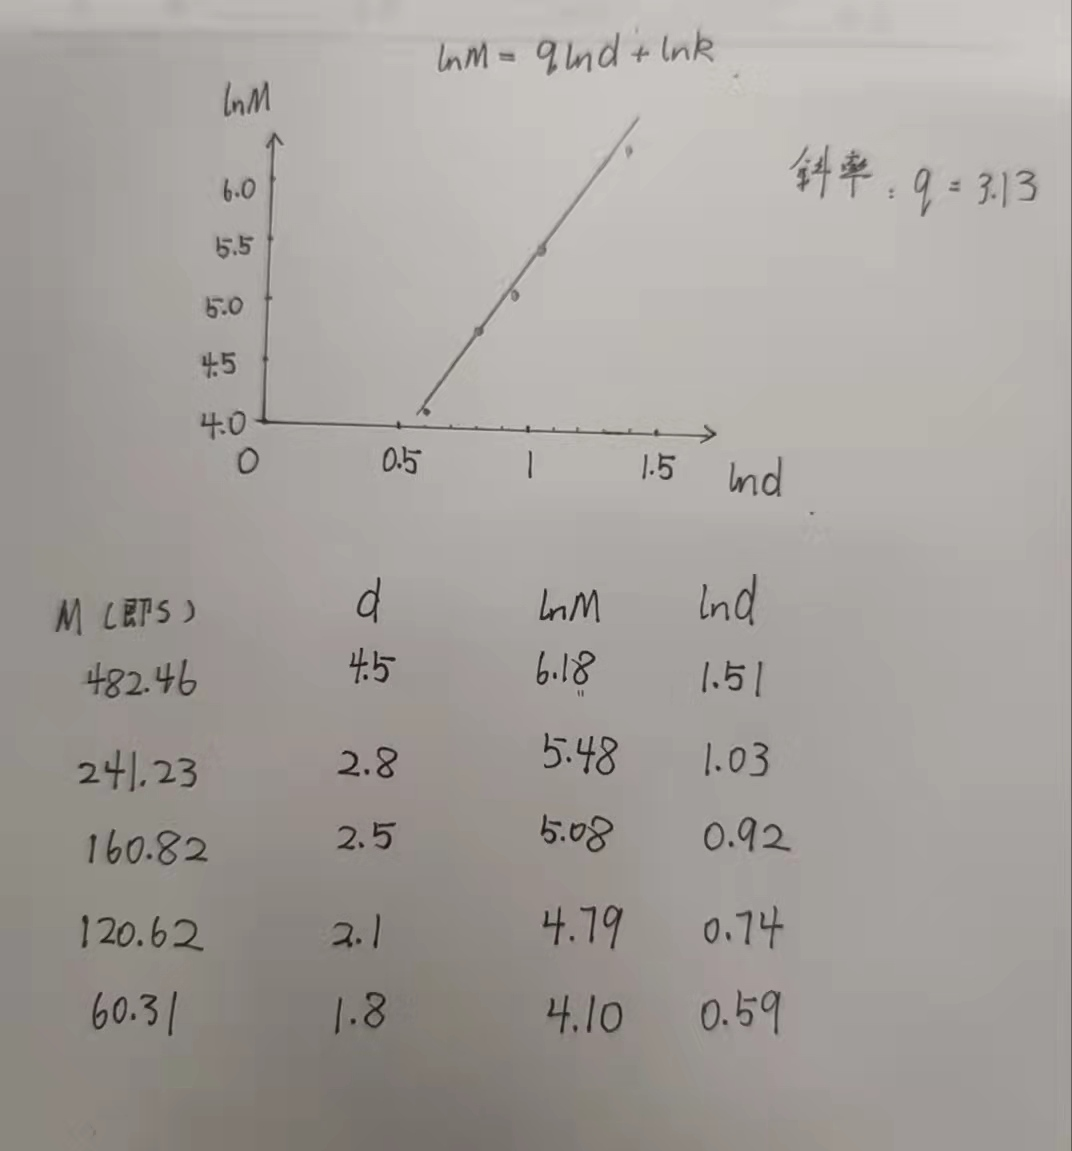 lnM = qlnd + lnk
lnM
斜率: q = 3.13
6.0
5.5
5.0
4.5
4.0
0 0.5 1 1.5 lnd
M (即S) d lnM lnd
482.46 4.5 6.18 1.51
241.23 2.8 5.48 1.03
160.82 2.5 5.08 0.92
120.62 2.1 4.79 0.74
60.31 1.8 4.10 0.59